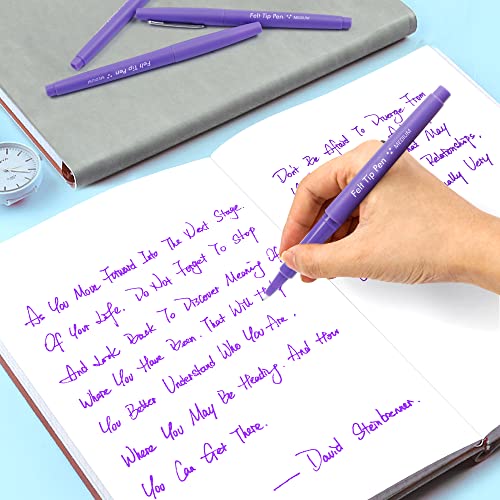 Felt Tip Pen MEDIUM
Felt Tip Pen MEDIUM
As You Move Forward Into The Next Stage
Of Your Life. Do Not Forget To Stop
And Look Back To Discover Meaning Of
Where You Have Been. That Will
You Better Understand Who You Are.
Where You May Be Heading. And How
You Can Get There.
— David Steinbrenner.
Don't Be Afraid To Diverge From
May
Relationships.
Very
Felt Tip Pen MEDIUM